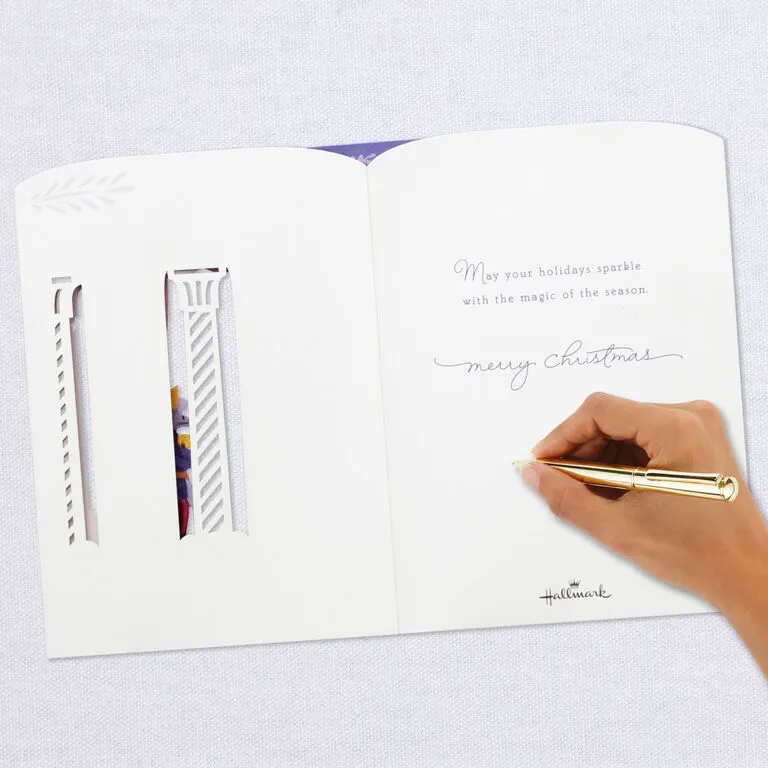 May your holidays sparkle
with the magic of the season.
merry christmas
Hallmark